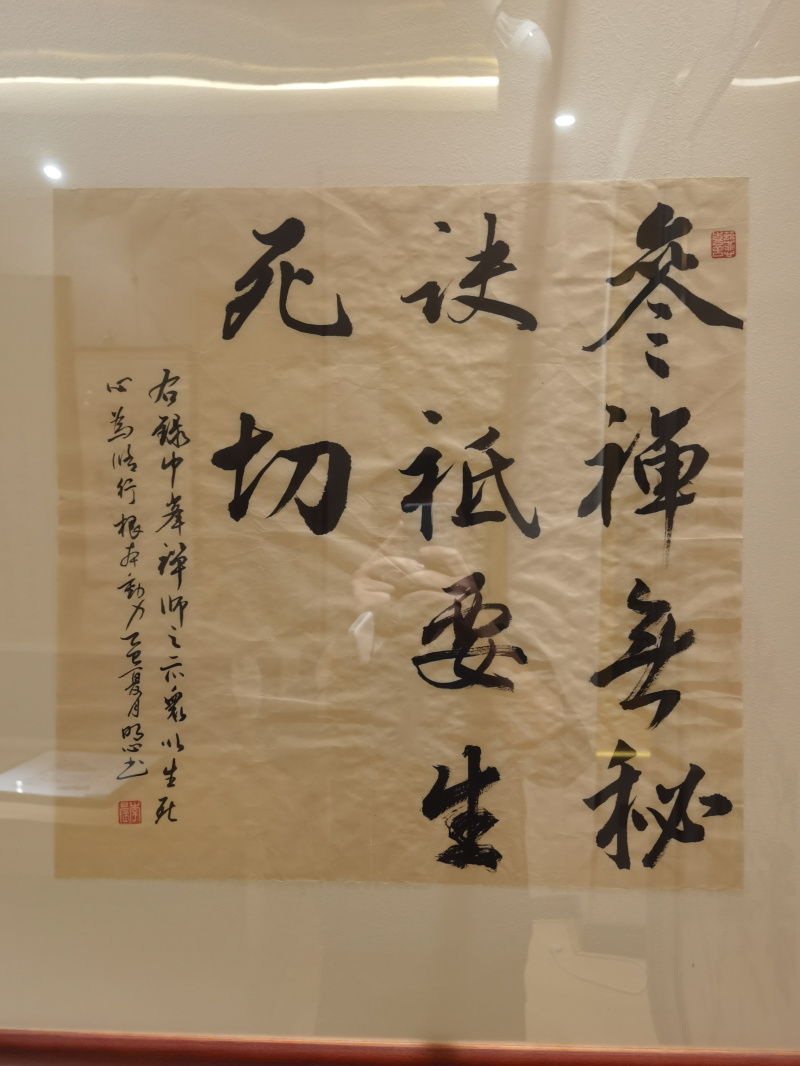 參禪無秘
訣祗要生
死切
右錄中峯禪師之示眾以生死
心為修行根本動力乙巳夏月明心书